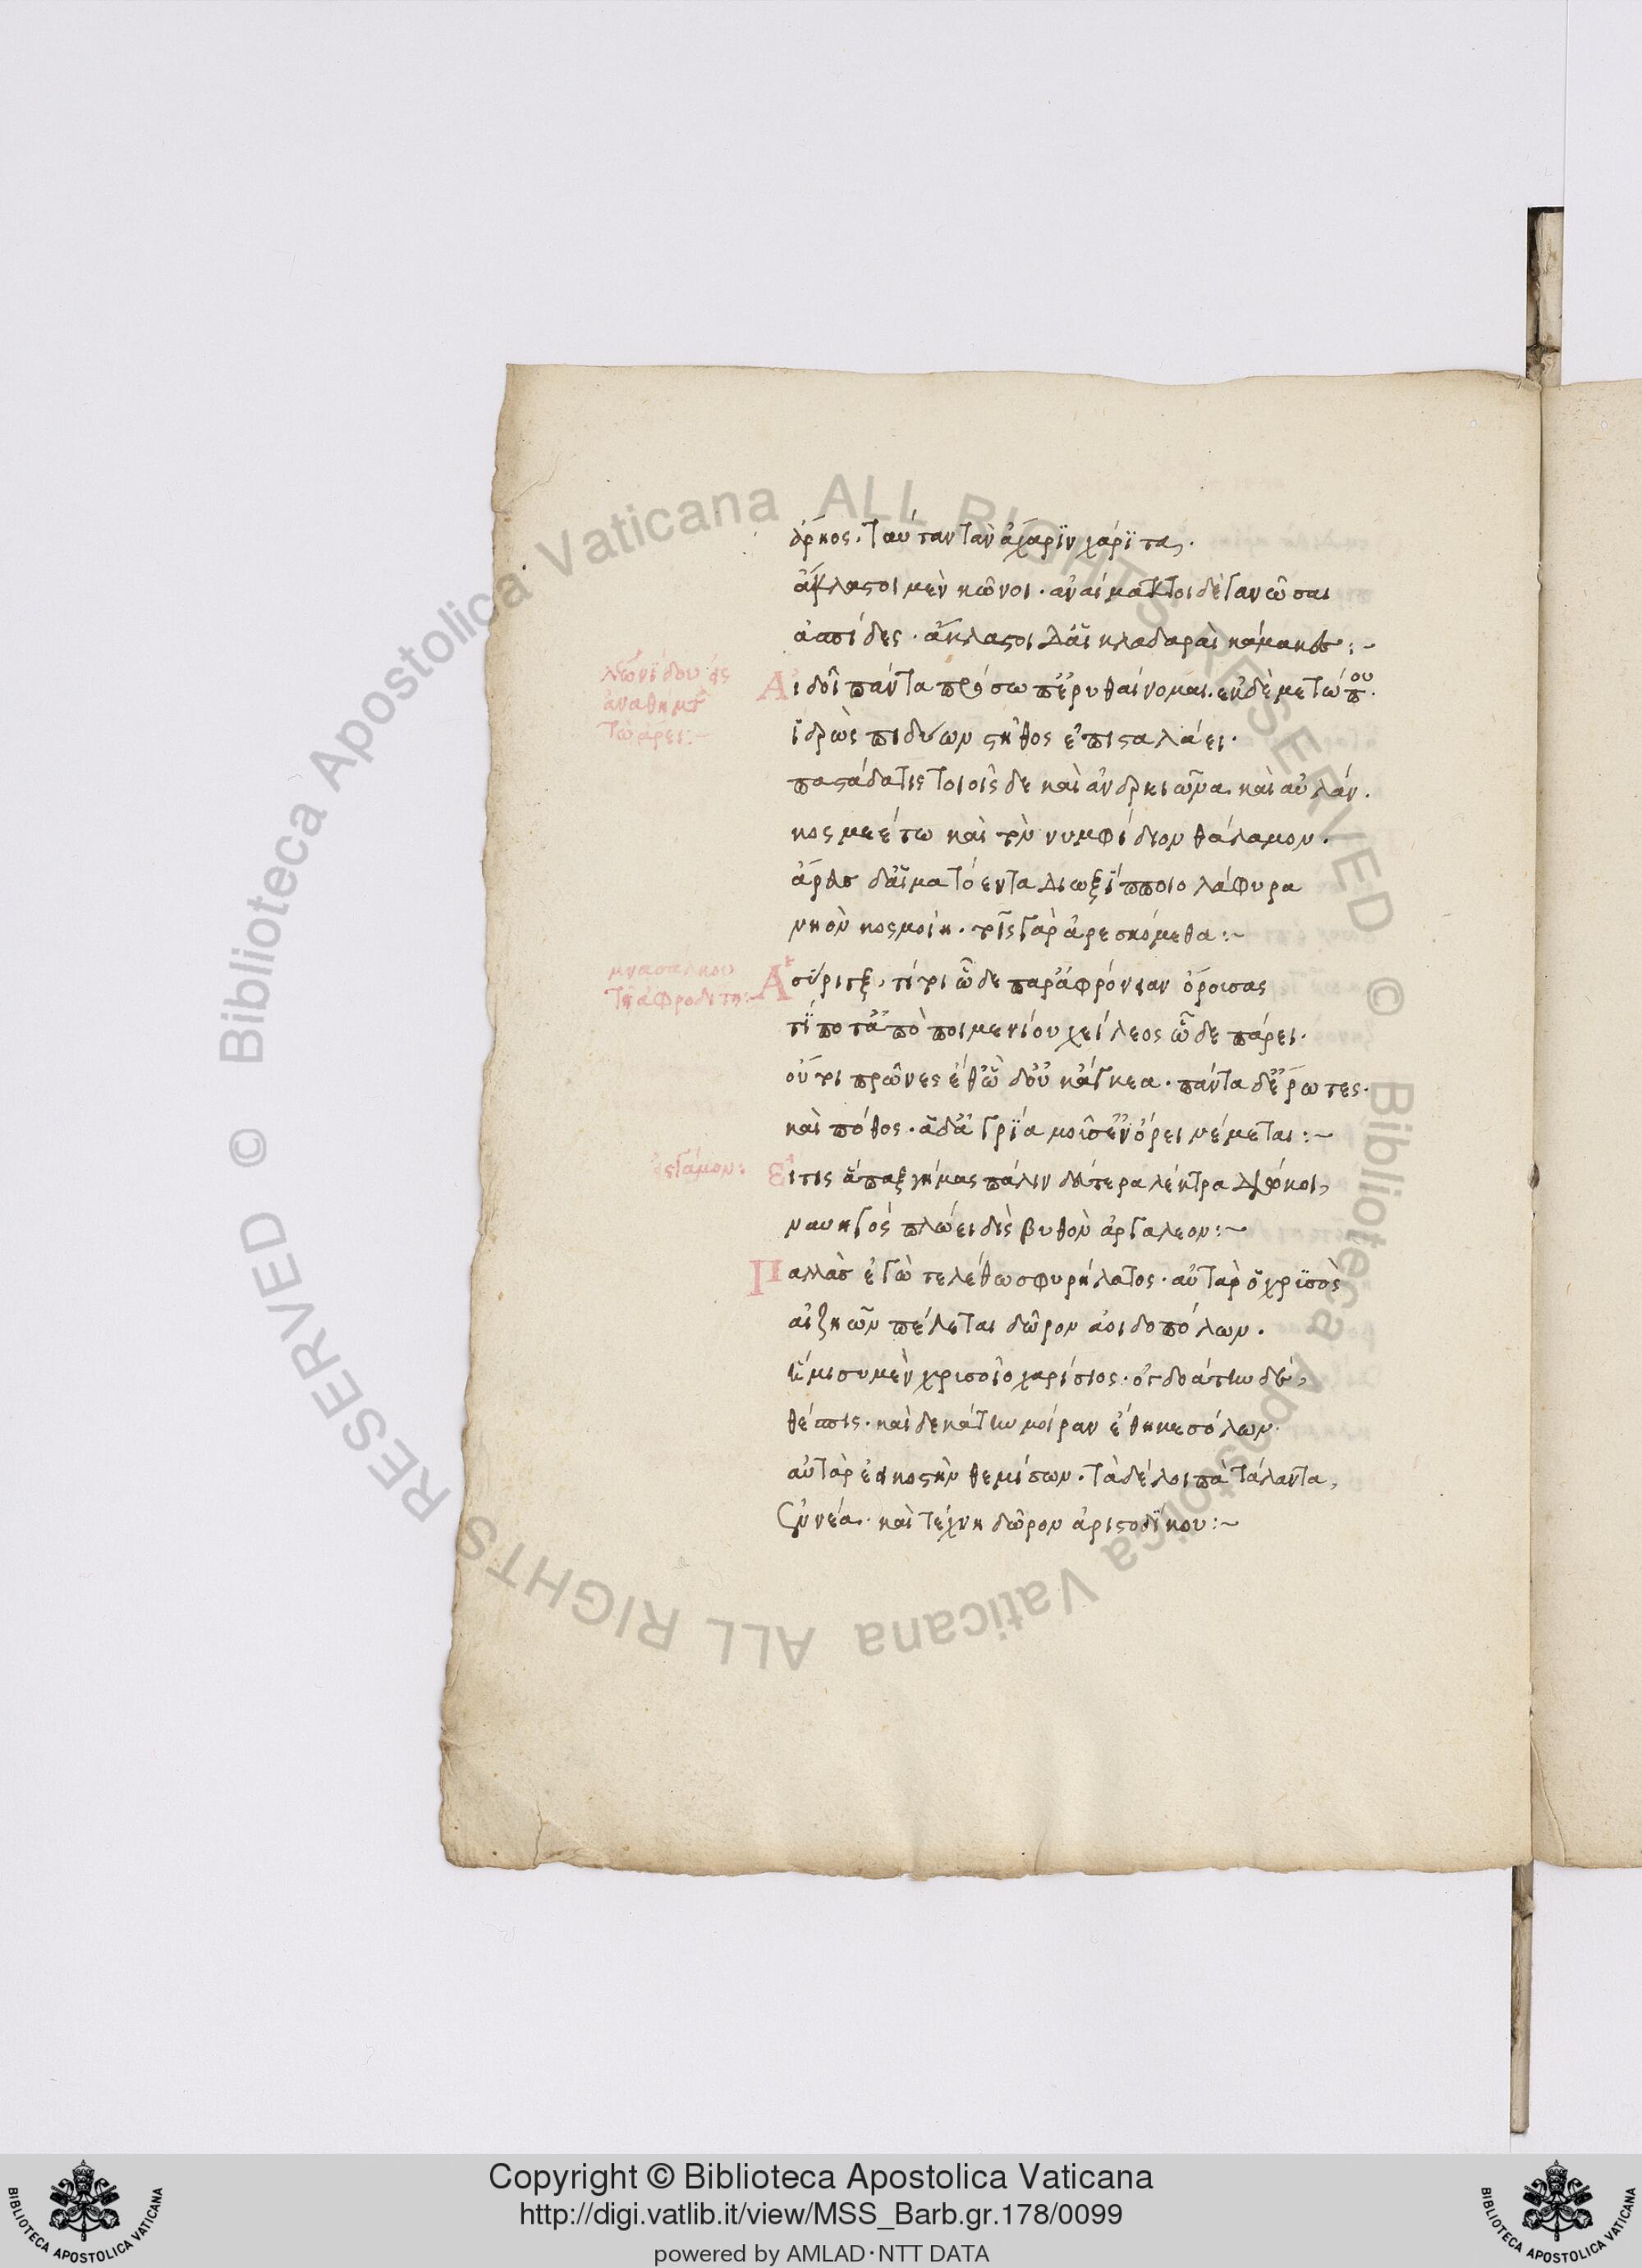 δέρκος. ταύταν τὰν ἄχαρϊν χάρϊτα.
ἄκλαστοι μὲν κῶνοι. ἀναίμακτοι δὲ γανῶσαι
ἀσπίδες. ἄκλαστοι δ' αἵ κλαδαραὶ κάμακες:~
λεωνίδου εἰς
ἀναθήματα
τῷ ἄρει:~
Αἰδοῖ πάντα πρόσωπ' ἐρυθαίνομαι. ἐκ δὲ μετώπου.
ἱδρὼς πιδύων στῆθος ἐπισταλάει.
παστάδα τις τοιοῖς δε καὶ ἀνδρειῶνα καὶ αὐλάν.
κοσμεέτω καὶ τὸν νυμφίδιον θάλαμον.
ἄρεος δ' αἱματόεντα διωξΐπποιο λάφυρα
νηὸν κοσμοίη. τοῖς γὰρ ἀρεσκόμεθα:~
μνασάλκου
τῇ ἀφροδίτῃ:
Α σύριγξ, τί τοι ὧδε παρ' ἀφρόνειαν ὄροισας
τίπο τ' ἀπὸ ποιμενίου χείλεος ὧδε πάρει.
οὔ τοι πρῶνες ἔθ' ὧδ' οὔτ' ἄγκεα. πάντα δ' ἔρωτες.
καὶ πόθος. ἁ δ' ἀγρία μοῖσ' ἐν ὄρει νέμεται:~
εἰς γάμον:
Εἴ τις ἅπαξ γήμας πάλιν δεύτερα λέκτρα διώκει,
ναυηγὸς πλώει δὶς βυθὸν ἀργαλεον:~
Παλλὰς ἐγὼ τελέθω σφυρήλατος. αὐτὰρ ὁ χρϋσὸς
αἰζηῶν πέλεται δῶρον ἀοιδοπόλων.
ἥμισυ μὲν χρυσοῖο χαρίσιος. ὀγδοάτην δέ,
θέσπις. καὶ δεκάτην μοῖραν ἔθηκε σόλων.
αὐτὰρ ἐεικοστὴν θεμίσων. τὰ δέ λοιπὰ τάλαντα,
ἐννέα. καὶ τέχνη δῶρον ἀριστοδίκου:~
Copyright © Biblioteca Apostolica Vaticana
http://digi.vatlib.it/view/MSS_Barb.gr.178/0099
powered by AMLAD･NTT DATA
© Biblioteca Apostolica Vaticana ALL RIGHTS RESERVED © Biblioteca Apostolica Vaticana ALL RIGHTS RESERVED
BIBLIOTECA APOSTOLICA VATICANA
BIBLIOTECA APOSTOLICA VATICANA